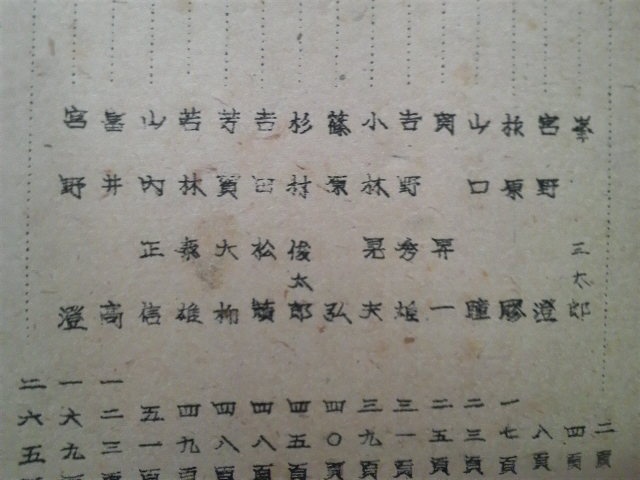 二頁
峯 三太郎 四頁
宮野 澄 八頁
萩原 膠 一七頁
山口 瞳 二三頁
関 昇一 二五頁
吉野 秀雄 三一頁
小林 晃夫 三九頁
篠原 弘 四〇頁
杉村 俊太郎 四五頁
吉田 松 四八頁
芳賀 大 四八頁
若林 泰雄 四九頁
山内 正信 五一頁
高 一二三
宮野 澄 一六九
二六五